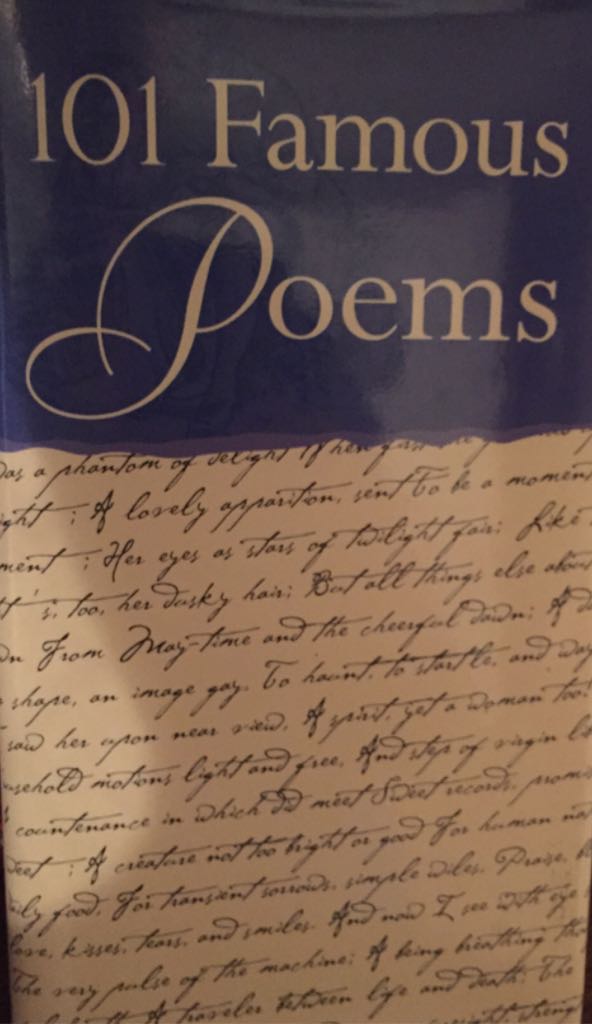 101 Famous
Poems
as a phantom of delight When first
ght ; A lovely apparition, sent To be a moment
ment ; Her eyes as stars of twilight fair; Like
t's, too, her dusky hair; But all things else about
n From May-time and the cheerful dawn; A
shape, an image gay, To haunt, to startle, and way
saw her upon near view, A spirit, yet a woman too!
usehold motions light and free, And step of virgin li
countenance in which did meet Sweet records, promis
eet ; A creature not too bright or good For human nat
ily food, For transient sorrows, simple wiles, Praise, b
love, kisses, tears, and smiles. And now I see with eye
The very pulse of the machine; A being breathing tho
A traveler between life and death: The